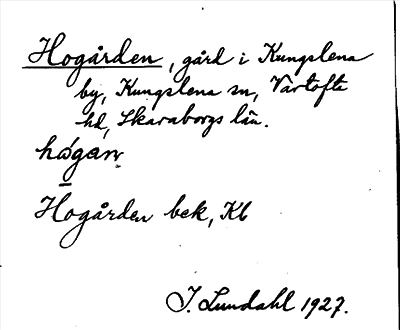 Hogården, gård i Kungslena
by, Kungslena sn, Vartofta
hd, Skaraborgs län.
hógan
Hogården bek, Kb
I. Lundahl 1927.